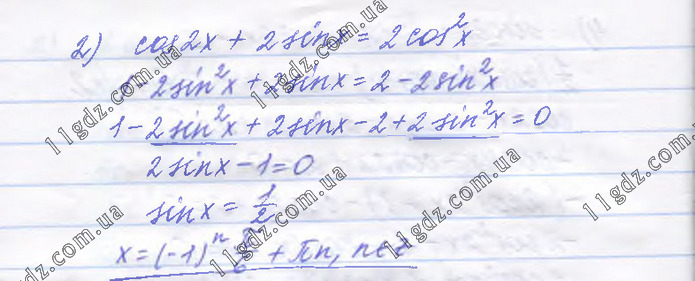 2) cos2x + 2sinx = 2cos²x
1 - 2sin²x + 2sinx = 2 - 2sin²x
1 - 2sin²x + 2sinx - 2 + 2sin²x = 0
2sinx - 1 = 0
sinx = 1/2
x = (-1)ⁿ π/6 + πn, n∈Z
11gdz.com.ua
11gdz.com.ua
11gdz.com.ua
11gdz.com.ua
11gdz.com.ua